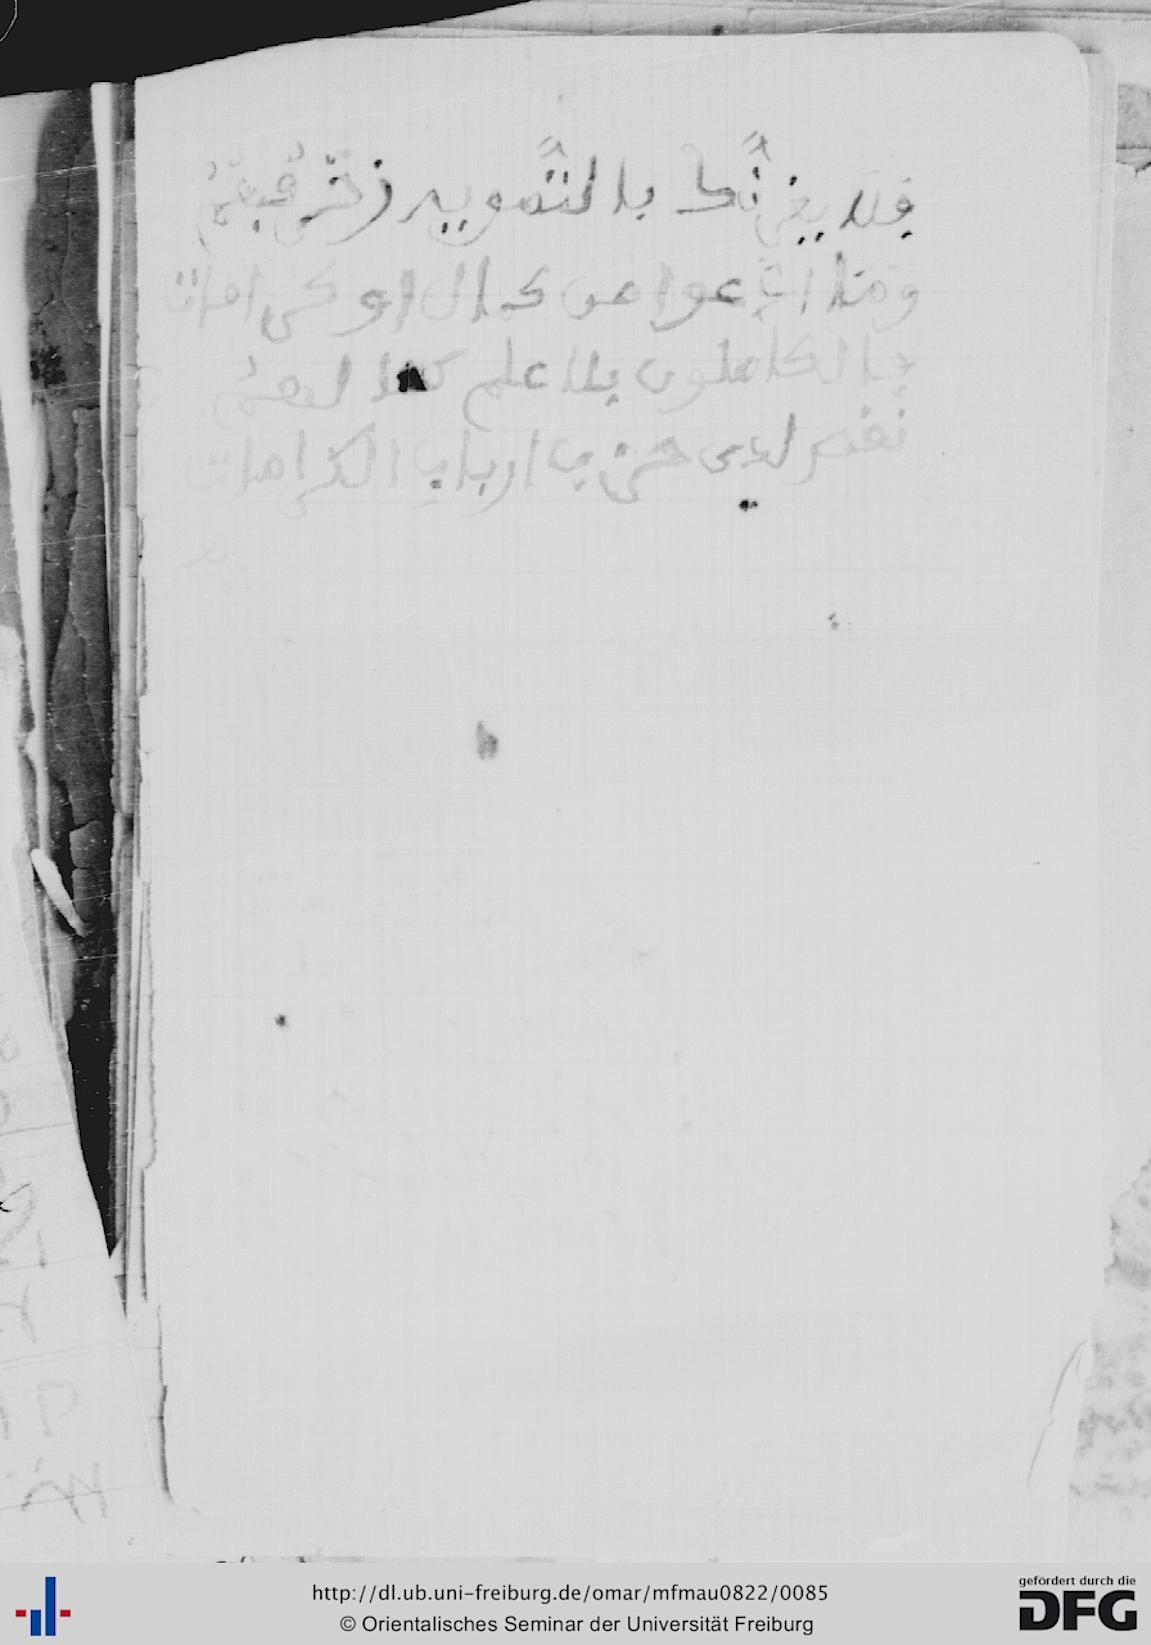 فلا يغرنّك بالتّمويه زخرفهمْ
وما ادّعوا من كمال او كرامات
ما الكاملون بلا علم كمالهمْ
نقص لدى حزب ارباب الكرامات
http://dl.ub.uni-freiburg.de/omar/mfmau0822/0085
© Orientalisches Seminar der Universität Freiburg
gefördert durch die
DFG